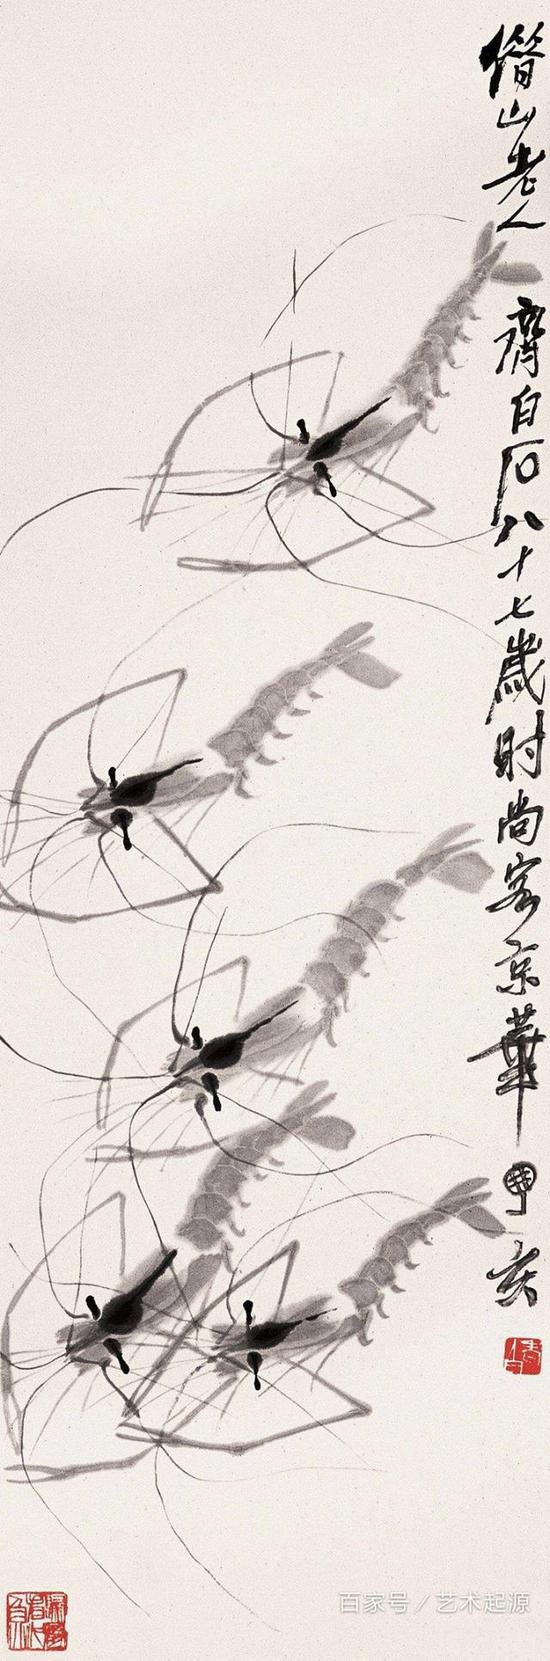 借山老人 齊白石八十七歲时尚客京華 亥
百家号/艺术起源